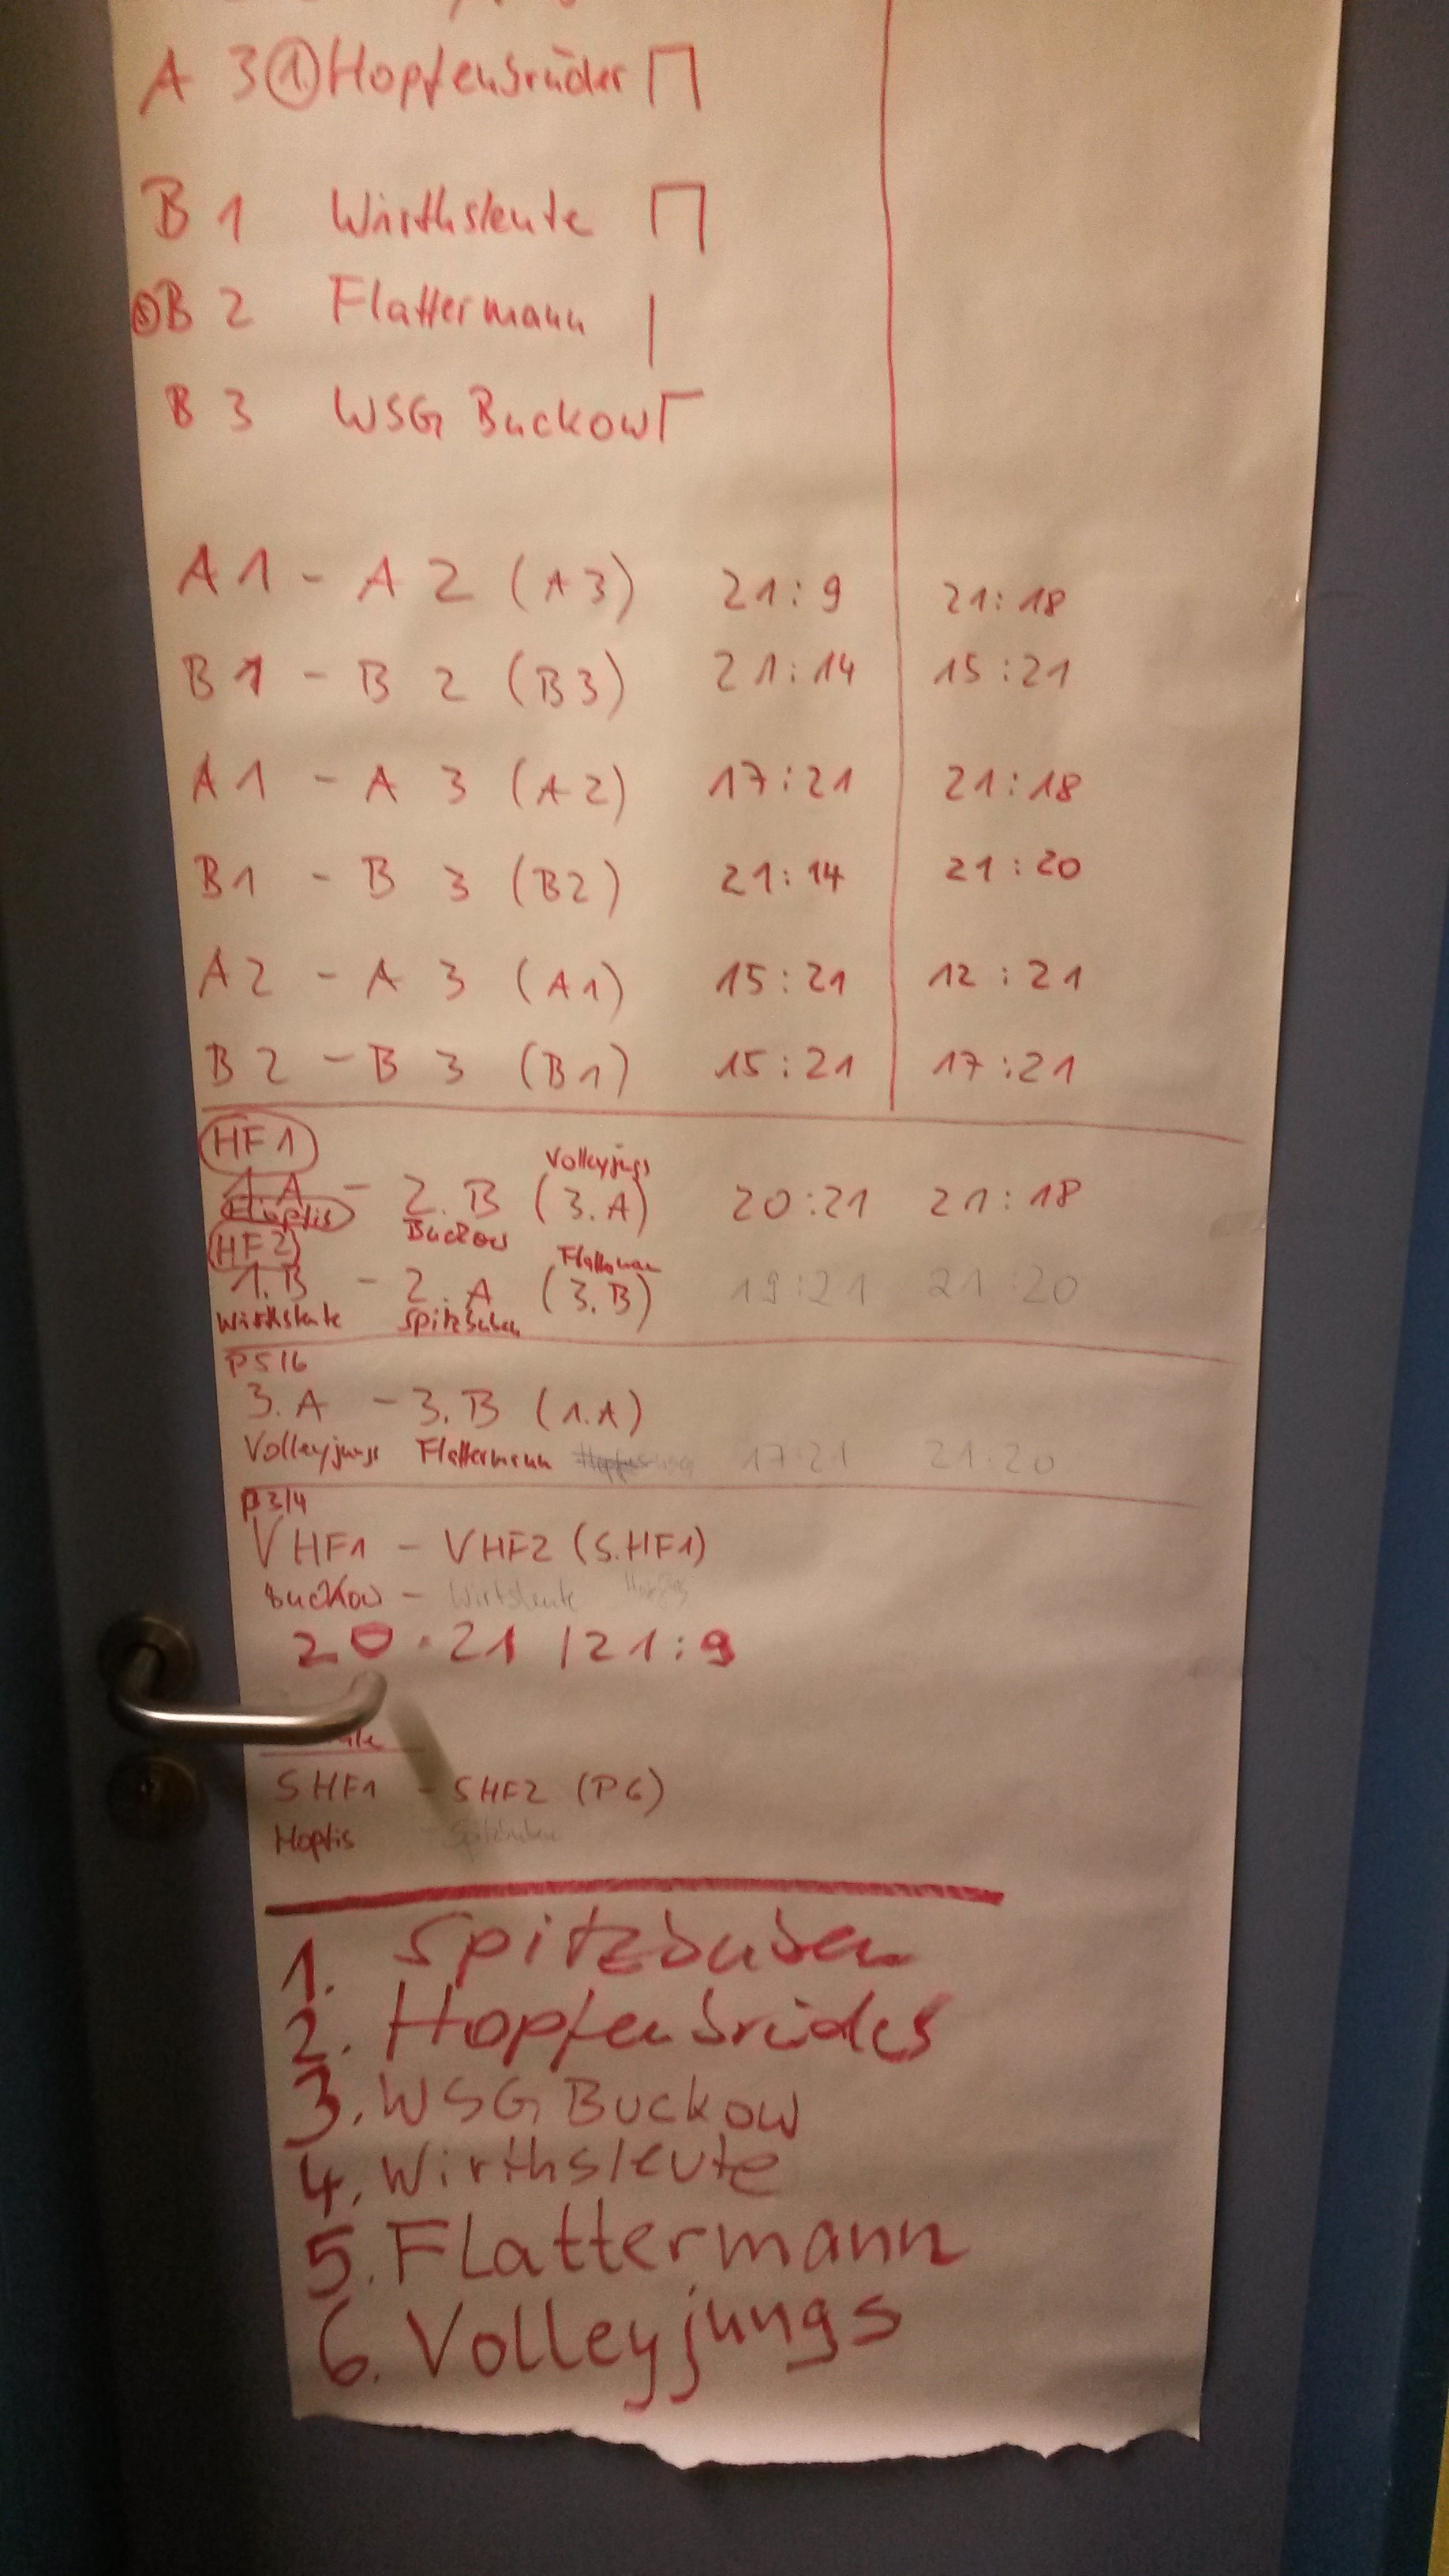 A 3 ① Hopfenbrüder
B 1 Wirthsleute
B 2 Flattermann
B 3 WSG Buckow
A1 - A 2 (A3) 21:9 21:18
B1 - B 2 (B3) 21:14 15:21
A1 - A 3 (A2) 17:21 21:18
B1 - B 3 (B2) 21:14 21:20
A2 - A 3 (A1) 15:21 12:21
B2 - B 3 (B1) 15:21 17:21
HF1
Volleyjungs
1.A - 2.B (3.A) 20:21 21:18
Hoptis Buckow
HF2 Flattermann
1.B - 2.A (3.B) 19:21 21:20
Wirthsleute Spitzbuben
P5/6
3.A - 3.B (1.A)
Volleyjungs Flattermann 17:21 21:20
P3/4
VHF1 - VHF2 (S.HF1)
Buckow - Wirtsleute
20:21 / 21:9
SHF1 - SHF2 (P6)
Hoptis - Spitzbuben
1. Spitzbuben
2. Hopfenbrüder
3. WSG Buckow
4. Wirthsleute
5. Flattermann
6. Volleyjungs